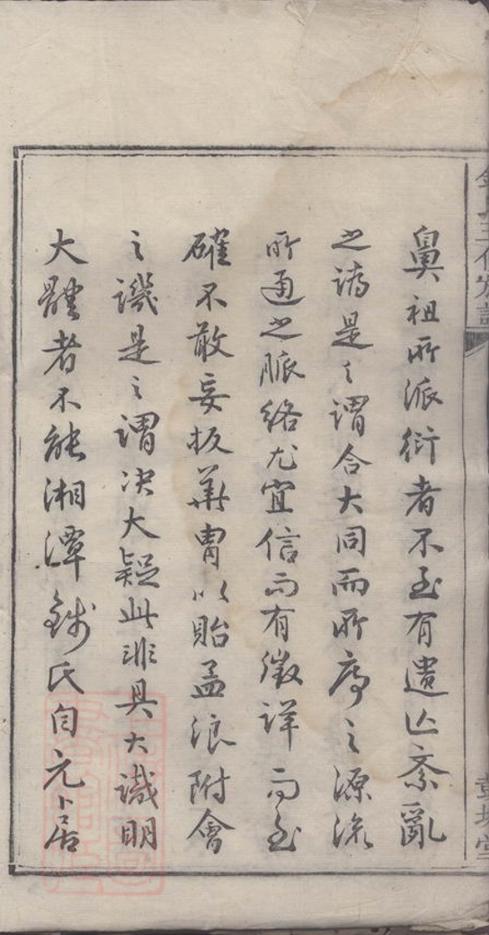 鼻祖所派衍者不至有遺亡紊亂
之誚是之謂合大同而所序之源流
所通之脈絡尤宜信而有徵詳而至
確不敢妄扳華胄以貽孟浪附會
之譏是之謂决大疑此非具大識明
大體者不能湘潭錢氏自元卜居